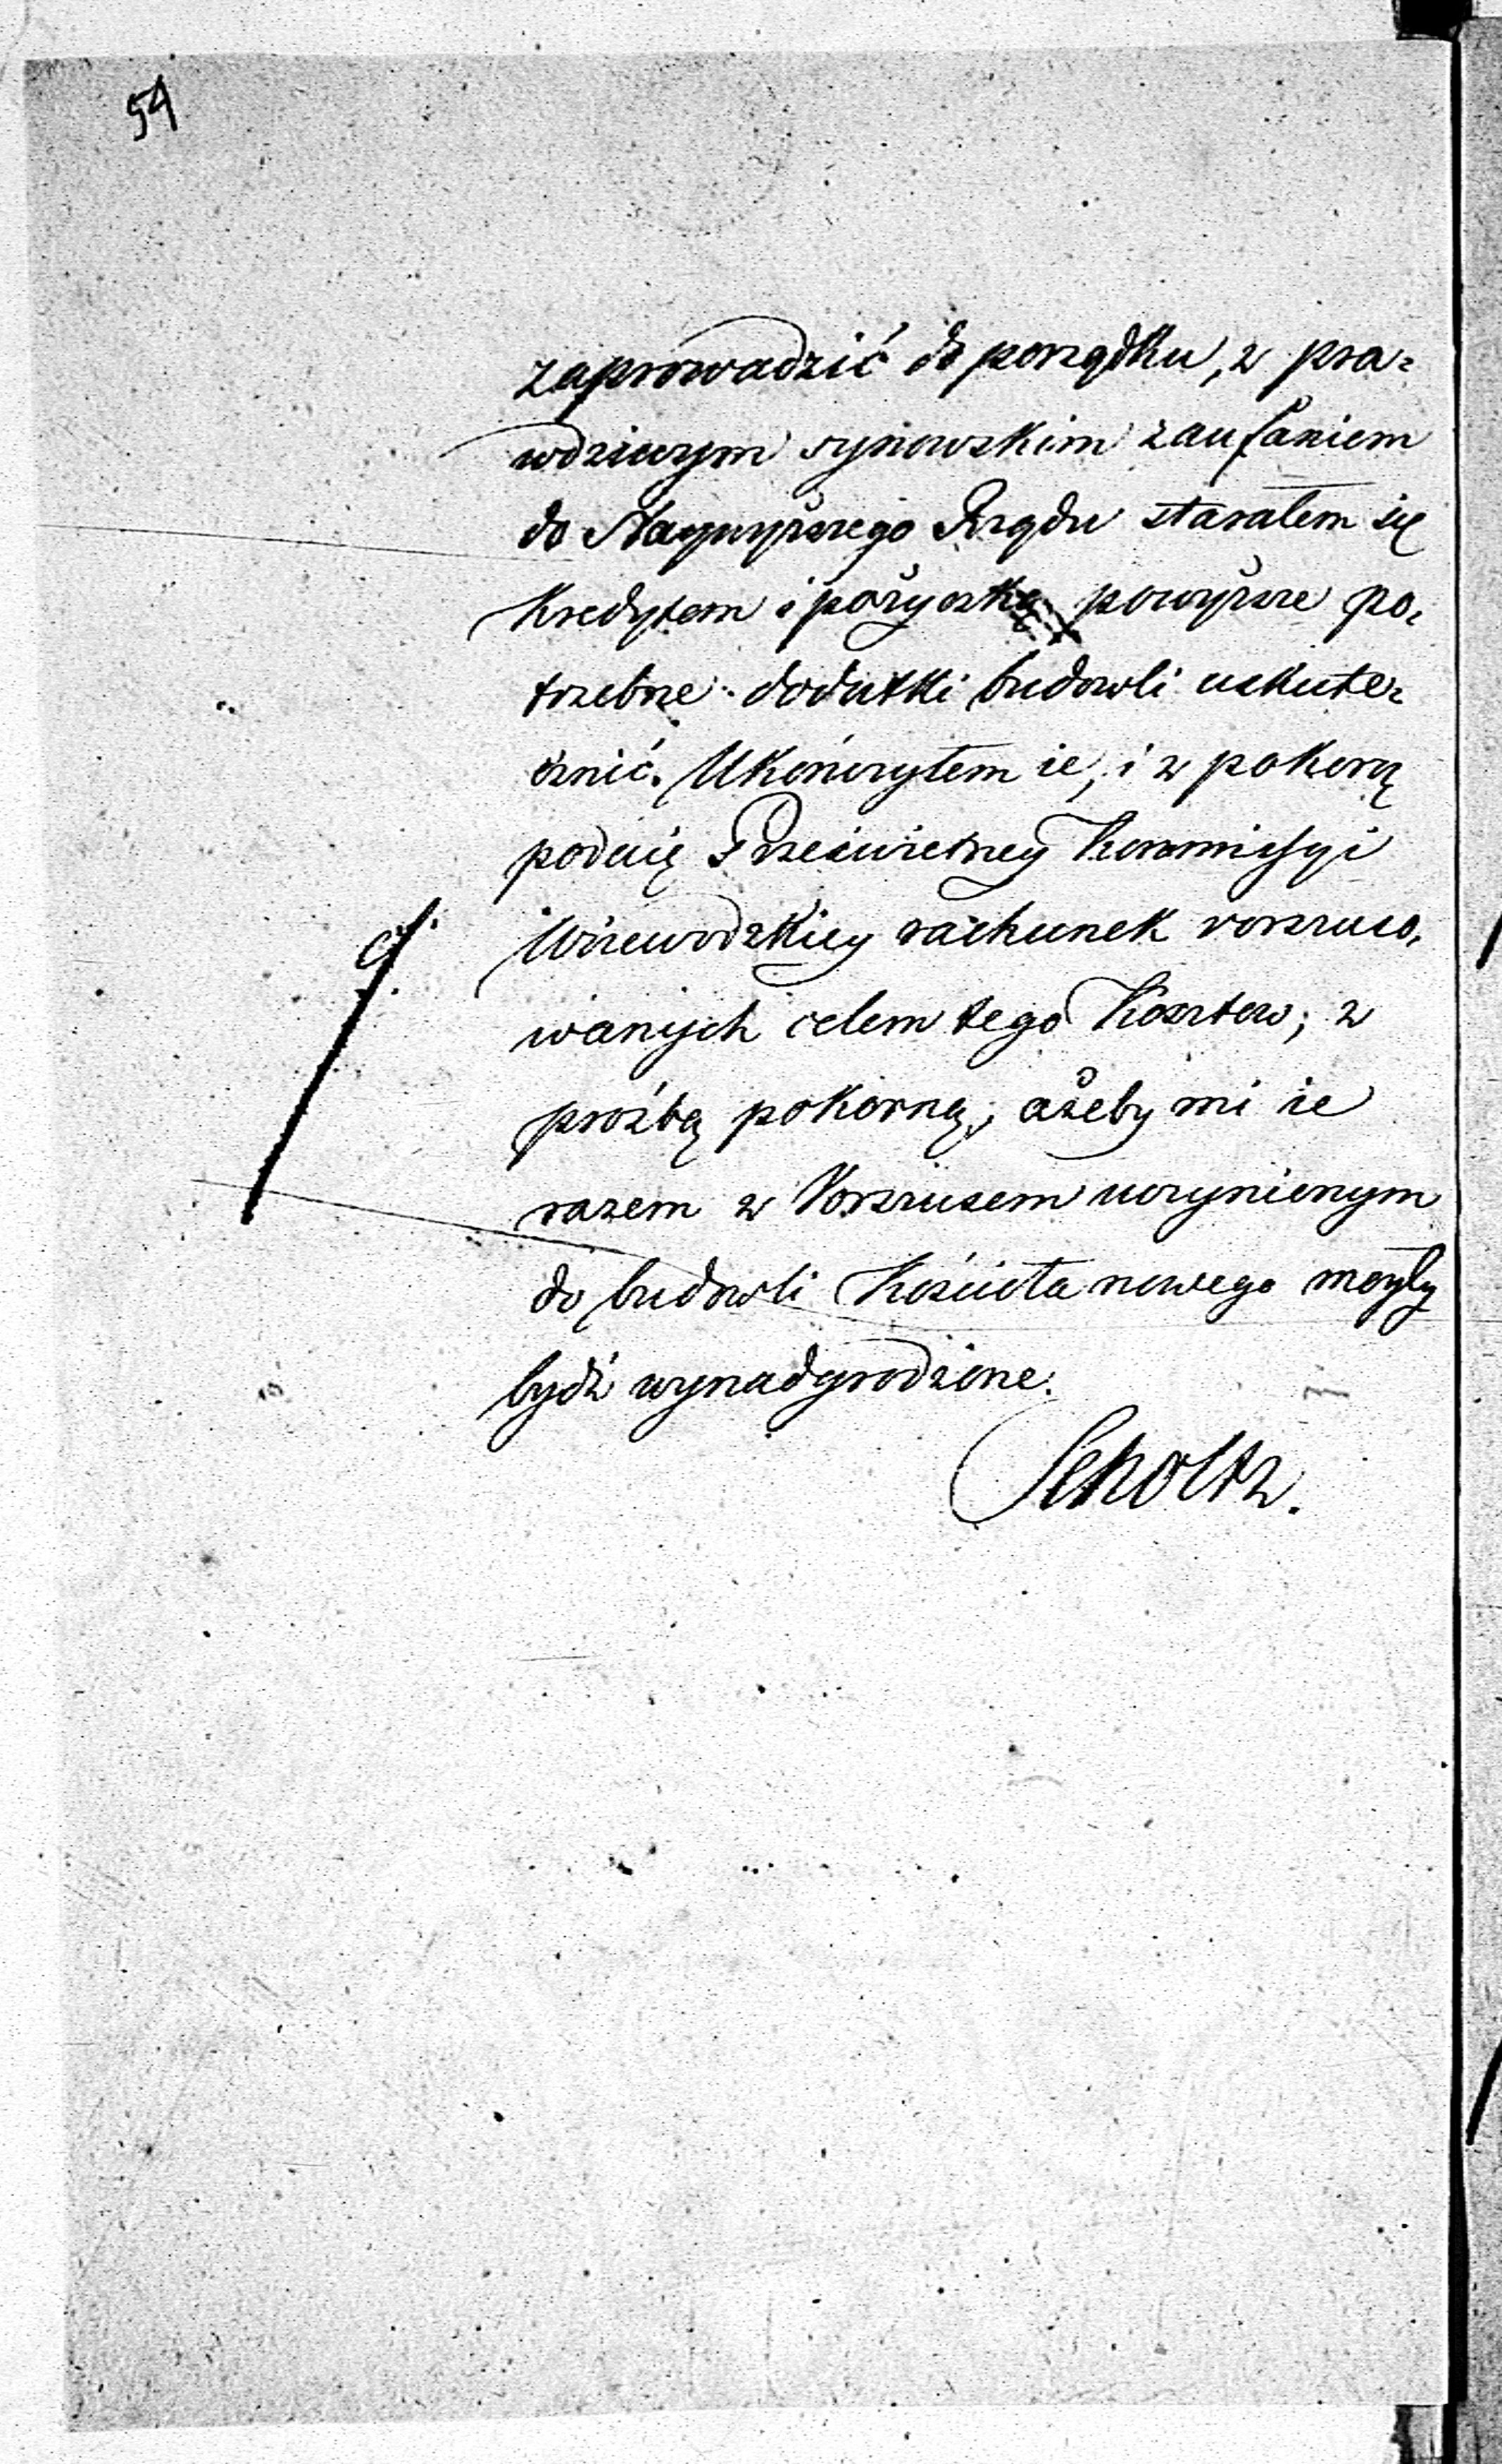 54
zaprowadzić do porządku, z pra=
wdziwym synowskim zaufaniem
do Naywyższego Rządu starałem się
Kredytem i pożyczką powyższe po=
trzebne dodatki budowli uskute=
cznić. Ukończyłem ie, i z pokorą
podaię Prześwietney Kommissyi
Woiewodzkiey rachunek vorszuso=
wanych celem tego Kosztow; z
proźbą pokorną, ażeby mi ie
razem z Vorszusem uczynionym
do budowli Kościoła nowego mogły
bydź wynadgrodzone.
Scholtz.